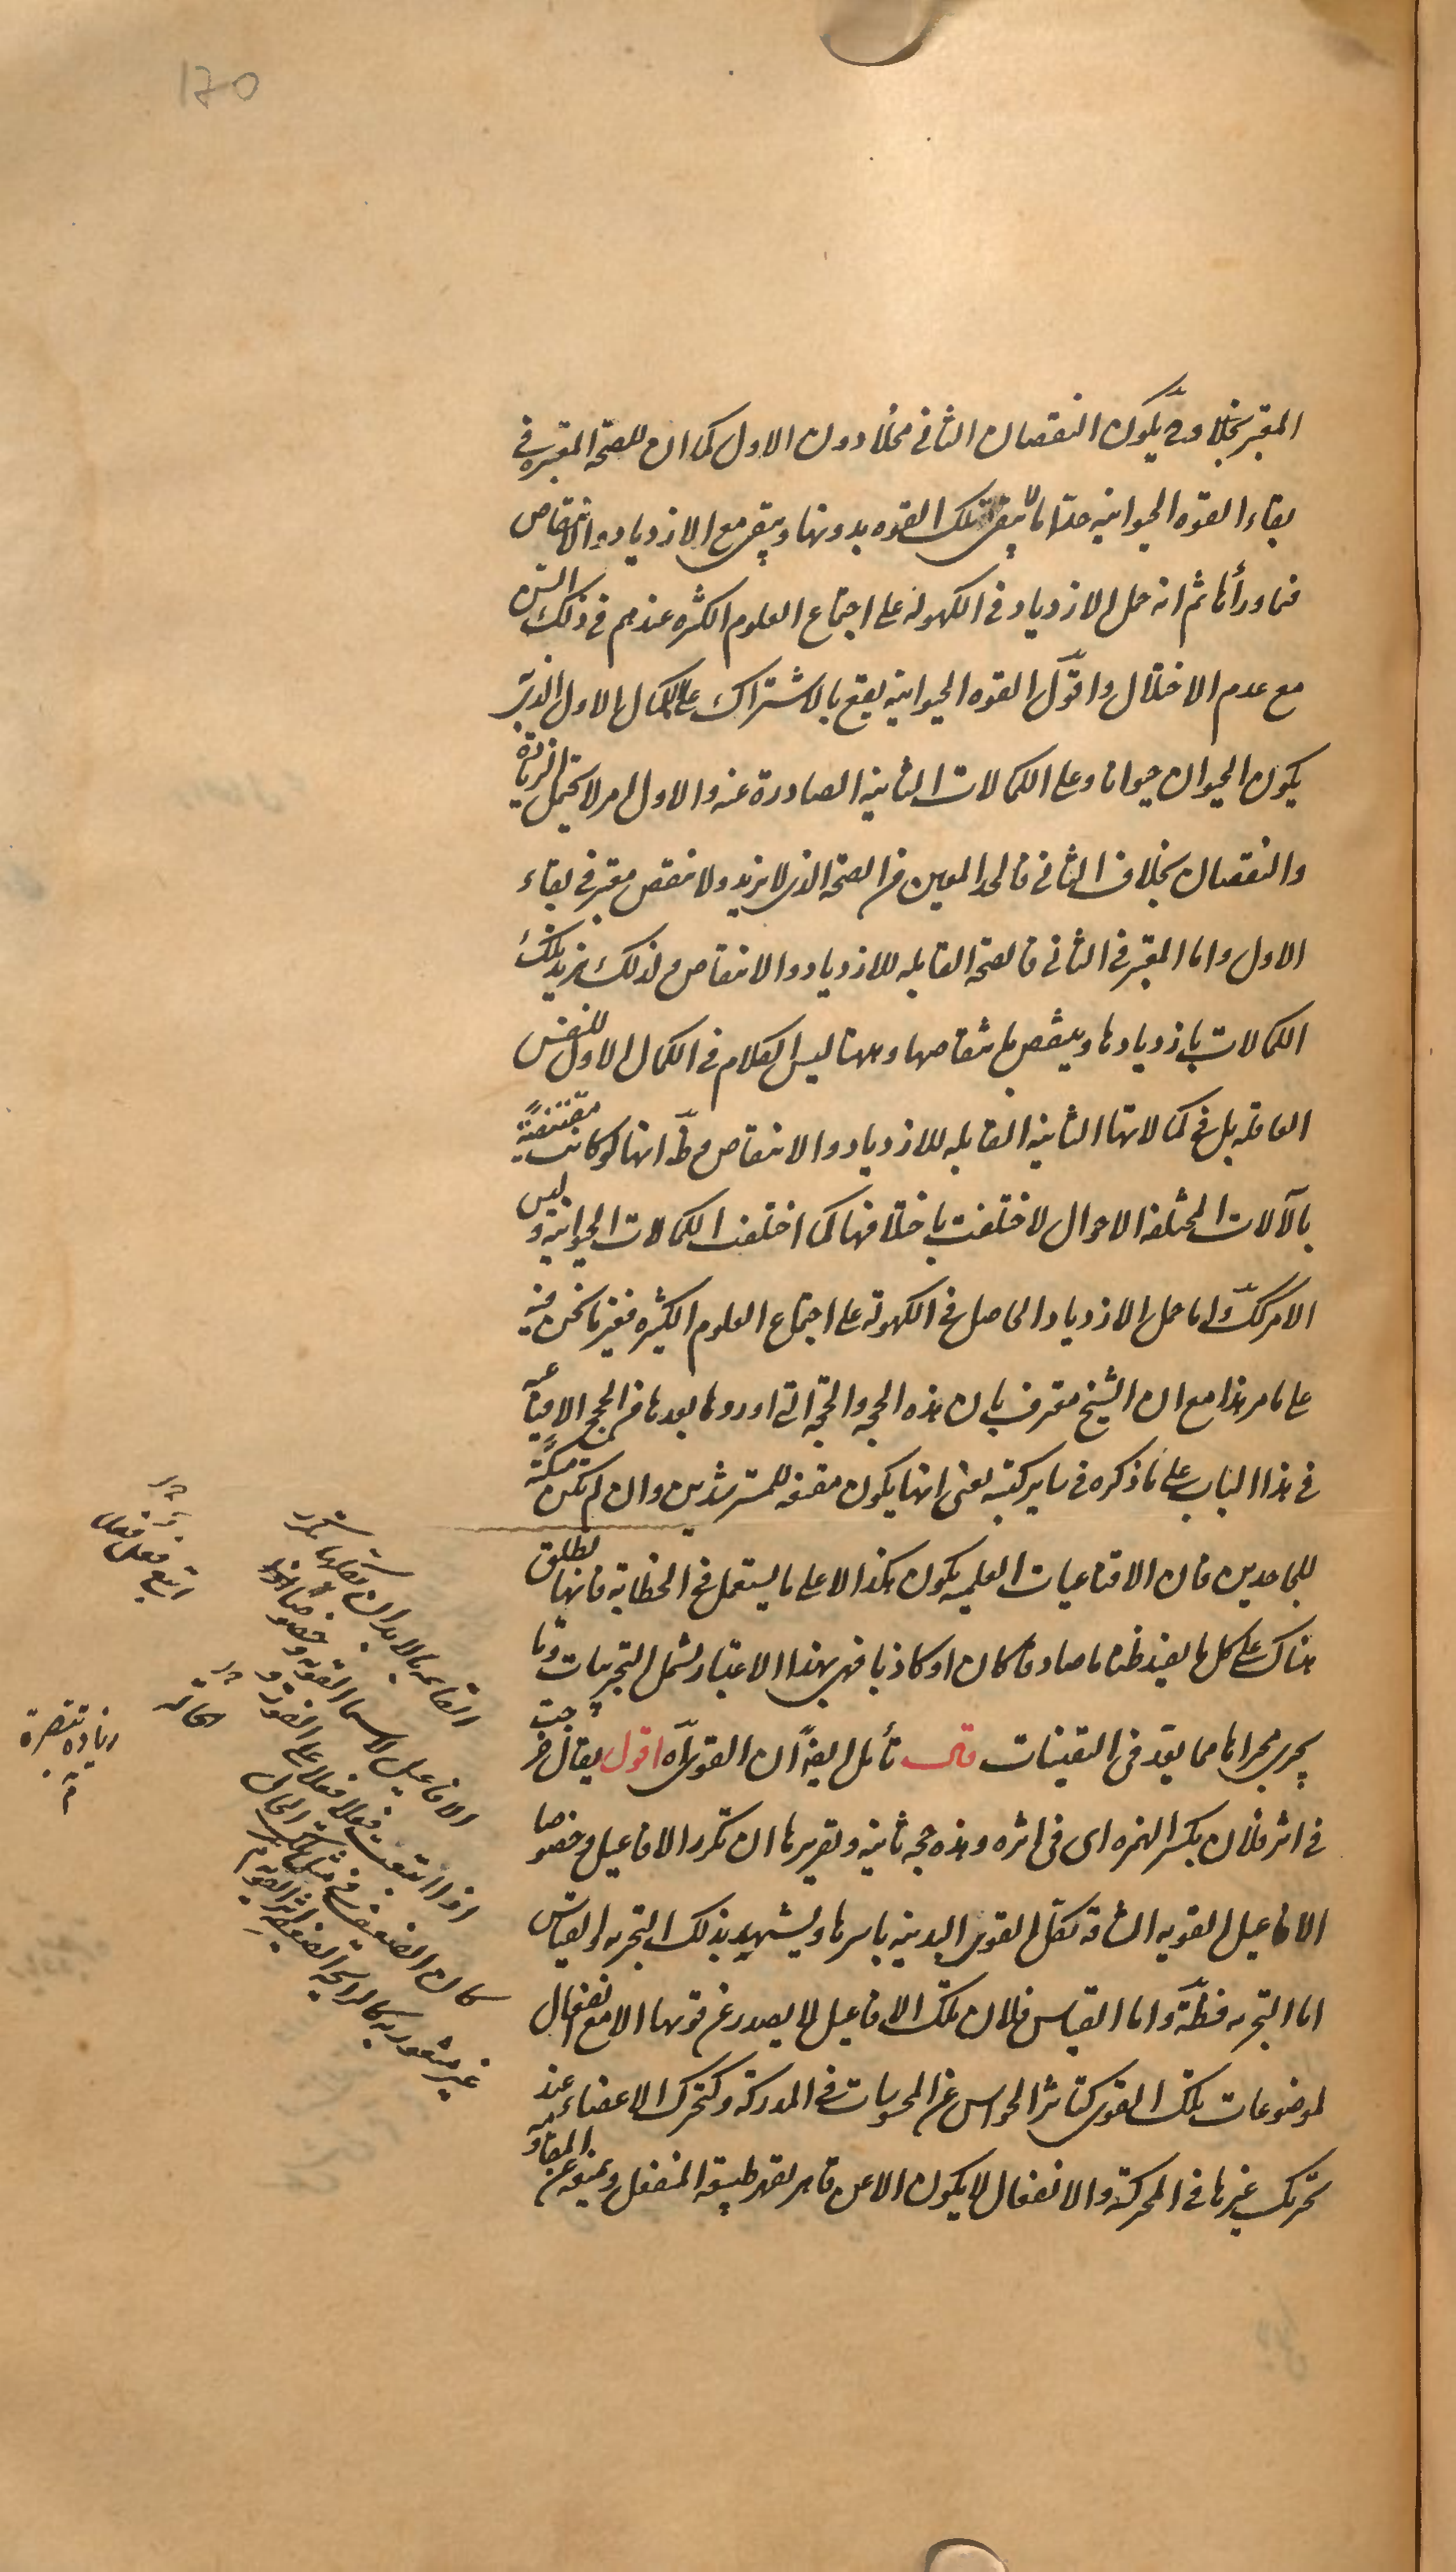 170
المعتبر بخلاف وح يكون النقصان الثانى مخلا دون الاول كما ان للصحة المعتبرة فى
بقاء القوة الحيوانية حدا ما لا يبقى تلك القوه بدونها ويبقى مع الازدياد والانتقاص
فما ورائها ثم انه حمل الازدياد فى الكهولة على اجتماع العلوم الكثيرة عندهم فى ذلك السن
مع عدم الاختلال واقول القوه الحيوانيه يقع بالاشتراك على الكمال الاول الذى به
يكون الحيوان حيوانا وعلى الكمالات الثانيه الصادرة عنه والاول امر لا يحتمل الزيادة
والنقصان بخلاف الثانى فالحد المعين من الصحة الذى لا يزيد ولا ينقص معتبر فى بقاء
الاول واما المعتبر فى الثانى فالصحة القابله للازدياد والانتقاص ولذلك يزيد تلك
الكمالات بازديادها وينتقص بانتقاصها وههنا ليس الكلام فى الكمال الاول للنفس
العاقله بل فى كمالاتها الثانيه القابله للازدياد والانتقاص وظ انها لو كانت مقتضية
بالآلات المختلفة الاحوال لاختلفت باختلافها كما اختلف الكمالات الحيوانية وليس
الامر كك واما حمل الازدياد الحاصل فى الكهولة على اجتماع العلوم الكثيره فغير ما نحن فيه
على ما مر هذا مع ان الشيخ معترف بان هذه الحجه والحجة التى اوردها بعدها من الحجج الاقناعيه
فى هذا الباب على ما ذكره فى ساير كتبه يعنى انها يكون مقنعه للمسترشدين وان لم تكن مسكتة
للجاحدين فان الاقناعيات العلميه يكون هكذا لا على ما يستعمل فى الخطابة فانها تطلق
هناك على كل ما يفيد ظنا ما صادقا كان او كاذبا فهى بهذا الاعتبار يشمل التجربيات وما
يجرى مجراها مما يعد فى اليقينيات قال تأمل ايضا ان القوى آه اقول يقال خرجت
فى اثر فلان بكسر الهمزه اى فى اثره وهذه حجه ثانيه وتقريرها ان تكرر الافاعيل وخصوصا
الافاعيل القويه الشاقه تكل القوى البدنيه باسرها ويشهد بذلك التجربه والقياس
اما التجربه فظ واما القياس فلان تلك الافاعيل لا يصدر عن قوتها الا مع انفعال
لموضوعات تلك القوى كتاثر الحواس عن المحسوسات فى المدركة وكتحرك الاعضاء عند
تحريك غيرها فى المحركة والانفعال لا يكون الا عن قاهر يقهر طبيعة المنفعل ويمنعه عن المقاومه
القائمه بالابدان يكلها تكرر
الافاعيل لا سيما القويه وخصوصا
اذا اتبعت فعلا فعلا على الفور و
كان الضعيف فى مثل تلك الحال
غير مشعور به كالرائحه الضعيفه اثر القويه م
اتبع فعل فعلا